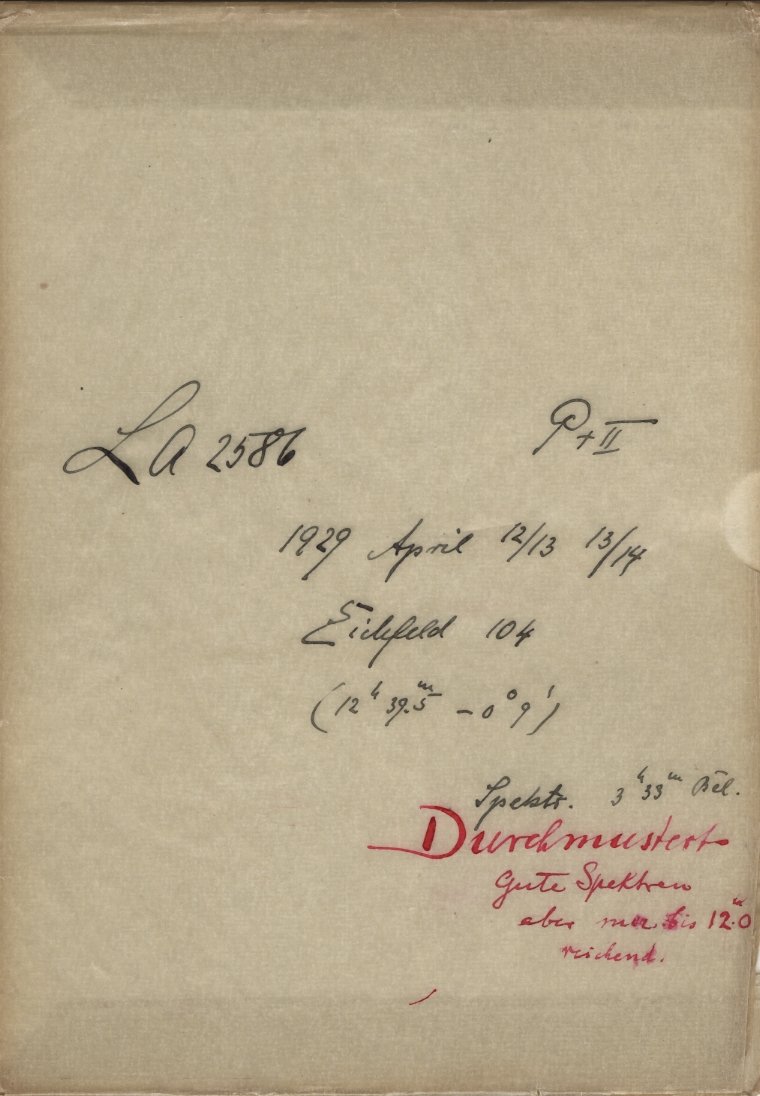 LA 2586 P+II
1929 April 12/13 13/14
Eichfeld 104
(12ʰ 39.5ᵐ -0° 9')
Spektr. 3ʰ 33ᵐ Bel.
Durchmustert
Gute Spektren
aber nur bis 12.ᵐ0
reichend.